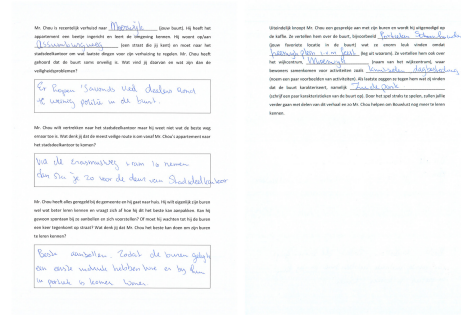 Mr. Chou is recentelijk verhuisd naar Moerwijk (jouw buurt). Hij heeft het
appartement een beetje ingericht en leert de omgeving kennen. Hij woont op/aan
(een straat die jij kent) en moet naar het
stadsdeelkantoor om wat laatste dingen voor zijn verhuizing te regelen. Mr. Chou heeft
gehoord dat de buurt soms onveilig is. Wat vind jij daarvan en wat zijn dan de
veiligheidsproblemen?
Er lopen 'savonds veel dealers rond
weinig politie in de buurt.
Mr. Chou wilt vertrekken naar het stadsdeelkantoor maar hij weet niet wat de beste weg
ernaar toe is. Wat denk jij dat de meest veilige route is om vanaf Mr. Chou's appartement naar
het stadsdeelkantoor te komen?
Via de erasmusweg tram 16 nemen
dan sta je zo voor de deur van Stadsdeelkantoor
Mr. Chou heeft alles geregeld bij de gemeente en hij gaat naar huis. Hij wilt eigenlijk zijn buren
wel wat beter leren kennen en vraagt zich af hoe hij dit het beste kan aanpakken. Kan hij
gewoon spontaan bij ze aanbellen en zich voorstellen? Of moet hij wachten tot hij de buren
een keer tegenkomt op straat? Wat denk jij dat Mr. Chou het beste kan doen om zijn buren
te leren kennen?
Beste aanbellen. Zodat de buren gelijk
een eerste indruk hebben hoe en bij hun
in portiek is komen wonen
Uiteindelijk knoopt Mr. Chou een gesprekje aan met zijn buren en wordt hij uitgenodigd op
de koffie. Ze vertellen hem over de buurt, bijvoorbeeld
(jouw favoriete locatie in de buurt) wat ze enorm leuk vinden omdat
(leg uit waarom). Ze vertellen hem ook over
het wijkcentrum, Moerwijk (naam van het wijkcentrum), waar
bewoners samenkomen voor activiteiten zoals dagbesteding
(noem een paar voorbeelden van activiteiten). Als laatste zeggen ze tegen hem wat zij vinden
dat de buurt karakteriseert, namelijk Zuiderpark
(schrijf een paar karakteristieken van de buurt op). Door het spel straks te spelen, zullen jullie
verder gaan met delen van dit verhaal en zo Mr. Chou helpen om Bouwlust nog meer te leren
kennen.